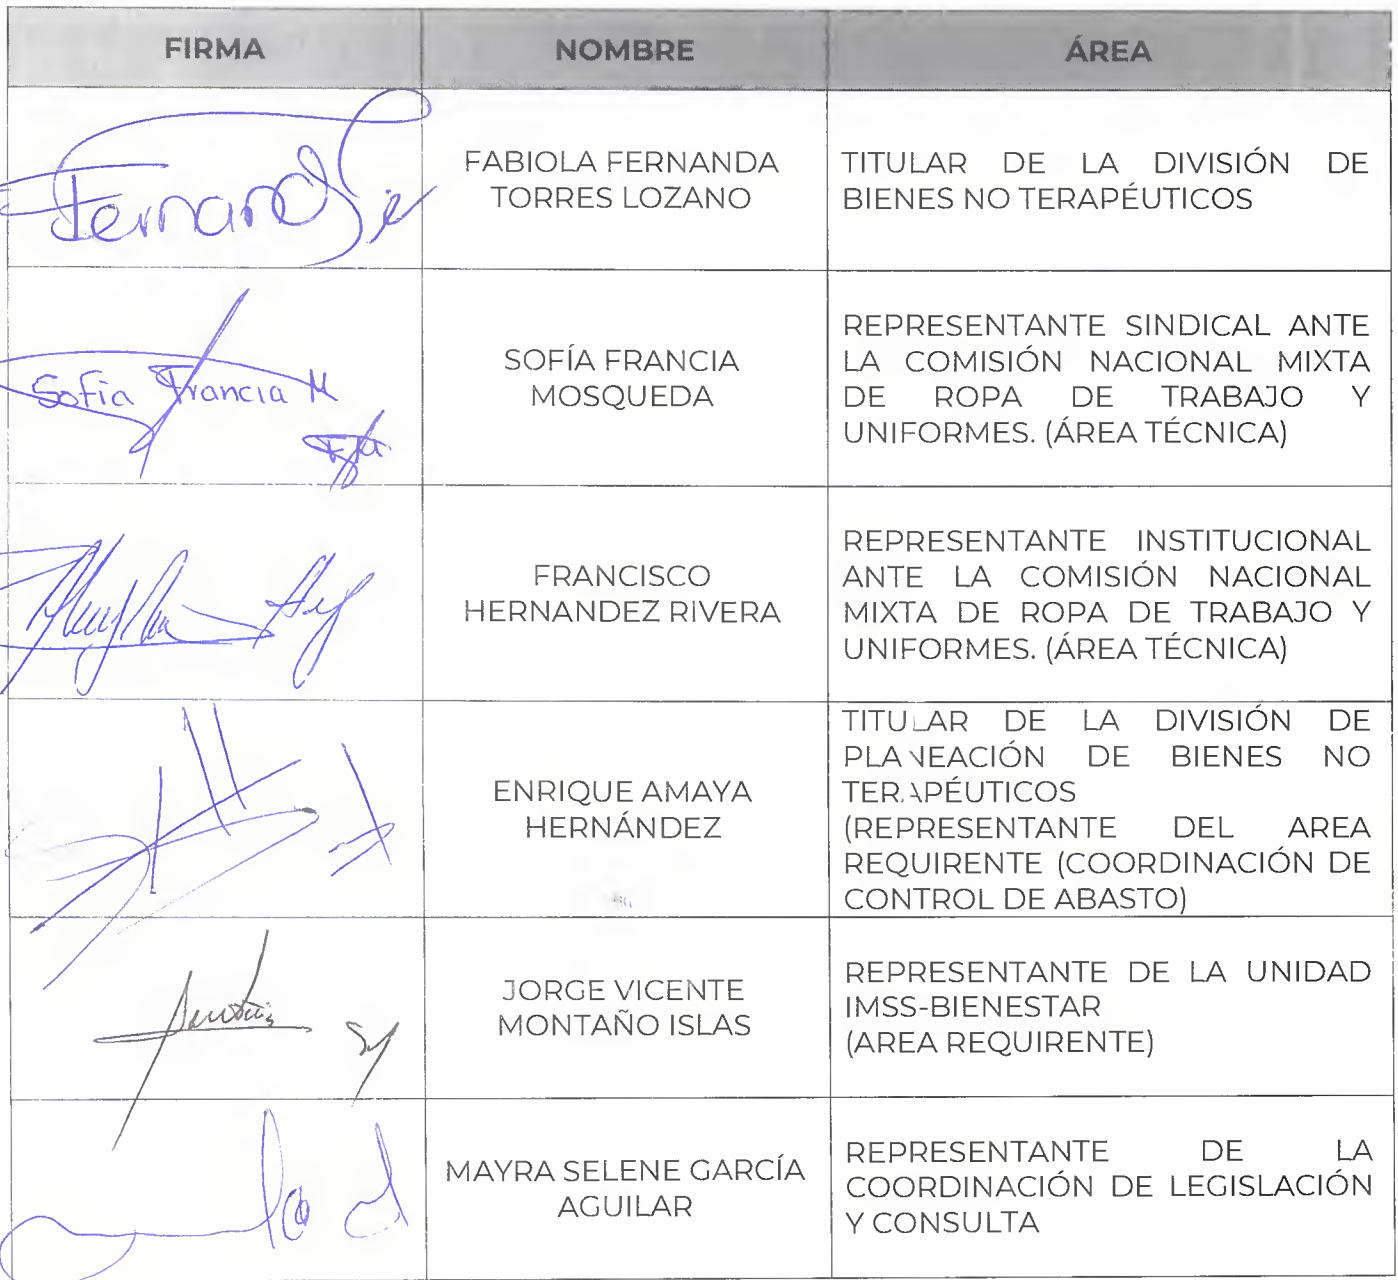 FIRMA NOMBRE ÁREA
Fernand
FABIOLA FERNANDA
TORRES LOZANO
TITULAR DE LA DIVISIÓN DE
BIENES NO TERAPÉUTICOS
Sofia Francia M
SOFÍA FRANCIA
MOSQUEDA
REPRESENTANTE SINDICAL ANTE
LA COMISIÓN NACIONAL MIXTA
DE ROPA DE TRABAJO Y
UNIFORMES. (ÁREA TÉCNICA)
FRANCISCO
HERNANDEZ RIVERA
REPRESENTANTE INSTITUCIONAL
ANTE LA COMISIÓN NACIONAL
MIXTA DE ROPA DE TRABAJO Y
UNIFORMES. (ÁREA TÉCNICA)
ENRIQUE AMAYA
HERNÁNDEZ
TITULAR DE LA DIVISIÓN DE
PLANEACIÓN DE BIENES NO
TERAPÉUTICOS
(REPRESENTANTE DEL AREA
REQUIRENTE (COORDINACIÓN DE
CONTROL DE ABASTO)
JORGE VICENTE
MONTAÑO ISLAS
REPRESENTANTE DE LA UNIDAD
IMSS-BIENESTAR
(AREA REQUIRENTE)
MAYRA SELENE GARCÍA
AGUILAR
REPRESENTANTE DE LA
COORDINACIÓN DE LEGISLACIÓN
Y CONSULTA